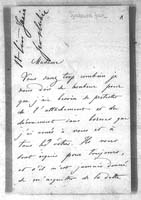 Madame
Vous savez trop combien je
nous dois de bonheur pour
que j'aie besoin de protester
de l'attachement et du
dévouement sans bornes que
j'ai voué à vous et à
tous les vôtres. Ils vous
sont acquis pour toujours,
et s'il m'est jamais donné
de m'acquitter de la dette